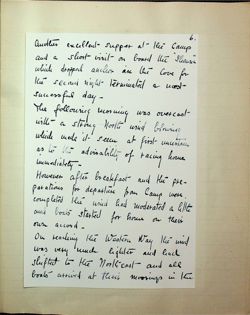 6.
Another excellent supper at the Camp
and a short visit on board the
which dropped anchor in the Cove for
the second night terminated a most
successful day -
The following morning was overcast
with a strong North wind blowing
which made it seem at first uncertain
as to the advisability of racing home
immediately -
However after breakfast and the pre-
parations for departure from Camp were
completed the wind had moderated a little
and boats started for home on their
own accord -
On reaching the Western Way the wind
was very much lighter and had
shifted to the North east and all
boats arrived at their moorings in the